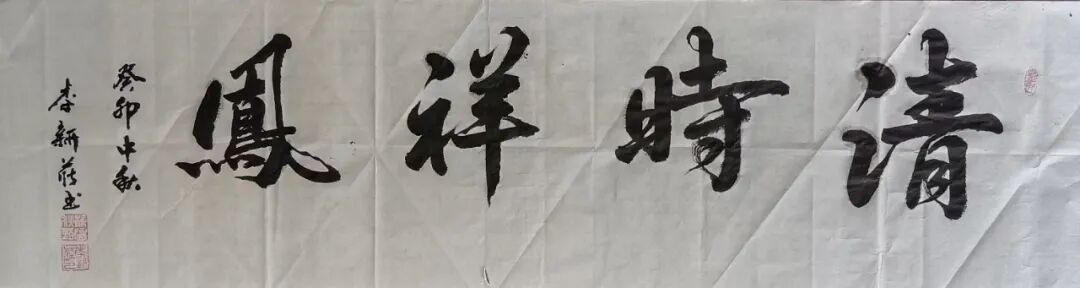 清時祥鳳
癸卯中秋
李新